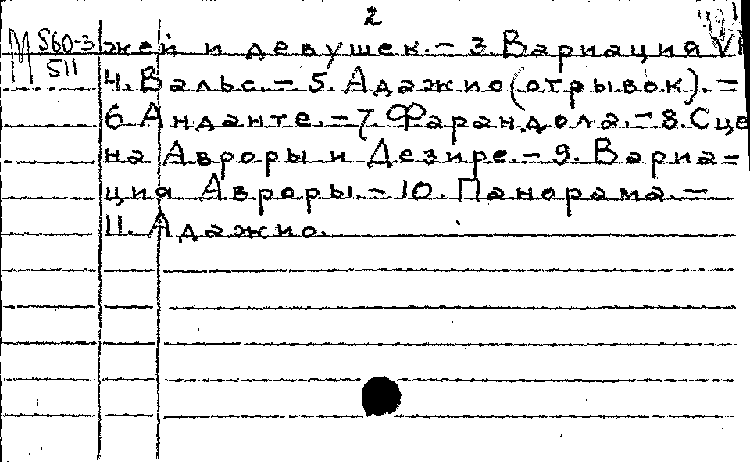 2
М 560-3
511
жей и девушек.- 3. Вариация VI
4. Вальс.- 5. Адажио (отрывок).-
6 Анданте.- 7. Фарандола.- 8. Сце
на Авроры и Дезире.- 9. Вариа-
ция Авроры.- 10. Панорама.-
11. Адажио.